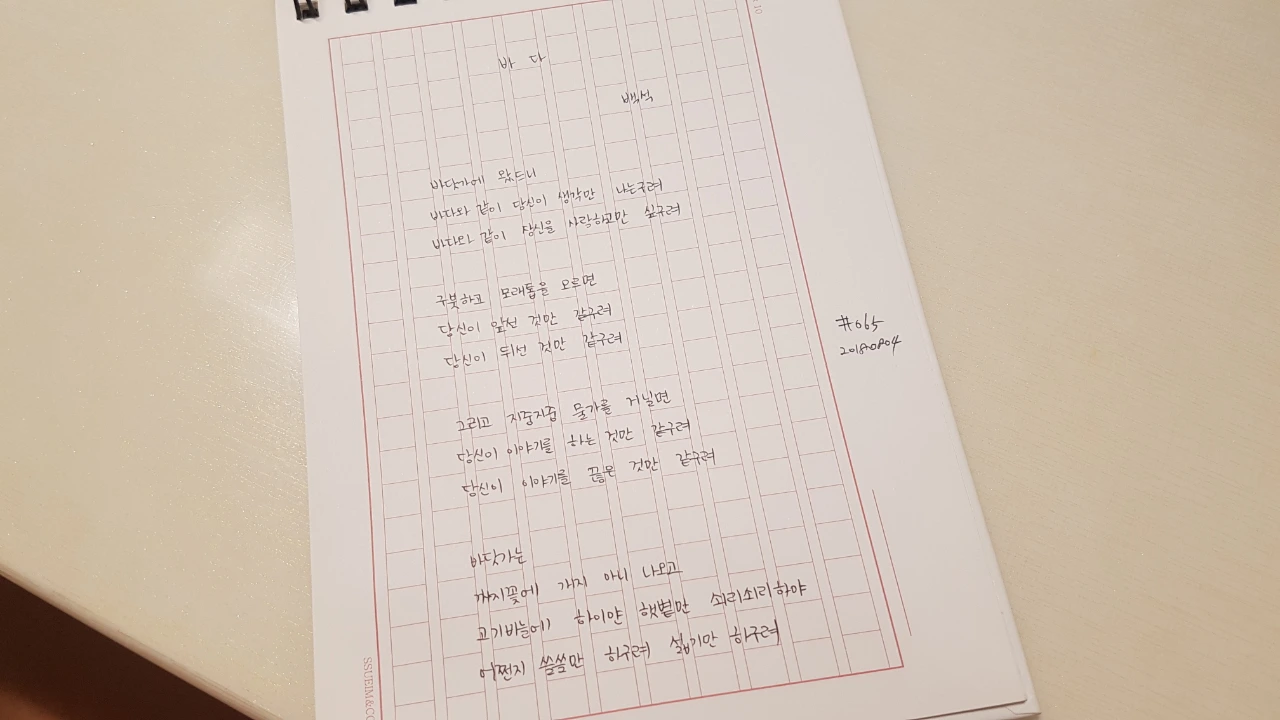 바 다
백석
바닷가에 왔드니
바다와 같이 당신이 생각만 나는구려
바다와 같이 당신을 사랑하고만 싶구려
구붓하고 모래톱을 오르면
당신이 앞선 것만 같구려
당신이 뒤선 것만 같구려
그리고 지중지중 물가를 거닐면
당신이 이야기를 하는 것만 같구려
당신이 이야기를 끊은 것만 같구려
바닷가는
개지꽃에 개지 아니 나오고
고기비늘에 하이얀 햇볕만 쇠리쇠리하야
어쩐지 쓸쓸만 하구려 섧기만 하구려
#065
20180804
10
SSUEIM&CC